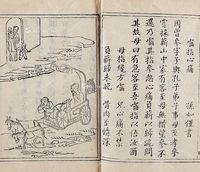 嚙指心痛　孫如僅書
周曾參字子輿孔子弟子事母至孝參
嘗採薪山中家有客至母無措望參不
還乃嚙其指參忽心痛負薪以歸跪問
其故母曰有急客至吾嚙指以悟汝爾
母指纔方嚙　兒心痛不禁
負薪歸未晚　骨肉至情深